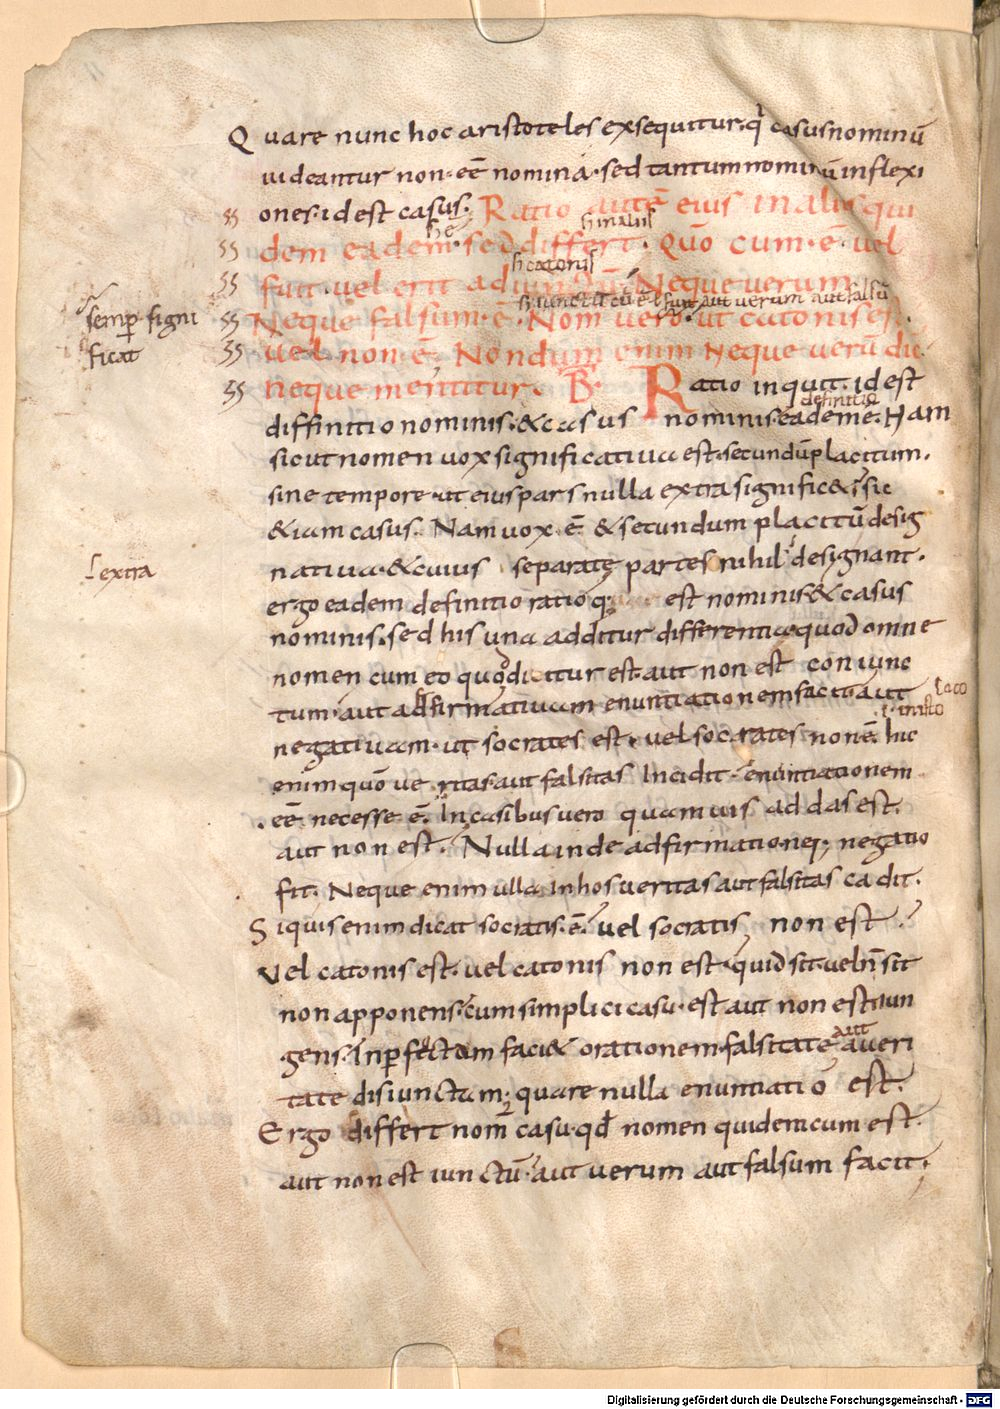 Quare nunc hoc aristoteles exsequitur. qi casus nominū
uideantur non eē nomina. sed tantum nominū inflexi
ones. idest casus. Ratio autē eius in aliis qui
hę
h in aliis
dem eadem. sed differt. Quō cum. ē. uel
h catonis
fuit. uel erit adiun Neque uerum.
aut uerum aut falsū
Neque falsum. ē. Nom uero. ut catonis ē
semꝑ signi
ficat
uel non ē. Nondum enim Neque uerū dic
neque mentitur. B. Ratio inquit. idest
definitio
diffinitio nominis. & casus nominis. eadem ē. Nam
sicut nomen uox significatiua est. secundū placitum.
sine tempore. ut eius pars nulla extra signific& sic
&iam casus. Nam uox. ē. & secundum placitū desig
extra
natiua. & cuius separatę partes nihil designant.
ergo eadem definitio ratioq; est nominis & casus
nominis. sed his una additur differentia quod omne
nomen cum eo quod dicitur est. aut non est coniunc
tum. aut adfirmatiuam enuntiationem facit aut
negatiuam. ut socrates est. uel socrates non ē. hic
enim quō ueritas. aut falsitas Incidit. enuntiationem
eē necesse ē. In casibus uero quamuis addas est.
aut non est. Nulla inde adfirmatio. neq; negatio
fit. Neque enim ulla in hos ueritas aut falsitas cadit.
Si quis enim dicat socratis. ē. uel socratis non est
Vel catonis est. uel catonis non est. quid sit. uel n̄ sit
non apponens. cum simplici casu. est aut non est iun
aut
gens. Inꝑfectam faci& orationem. falsitate a ueri
tate disiunctam. quare nulla enuntiatio est.
Ergo differt nom̄ casu. qđ nomen quidem cum est.
aut non est iunctū. aut uerum aut falsum facit.
Digitalisierung gefördert durch die Deutsche Forschungsgemeinschaft - DFG